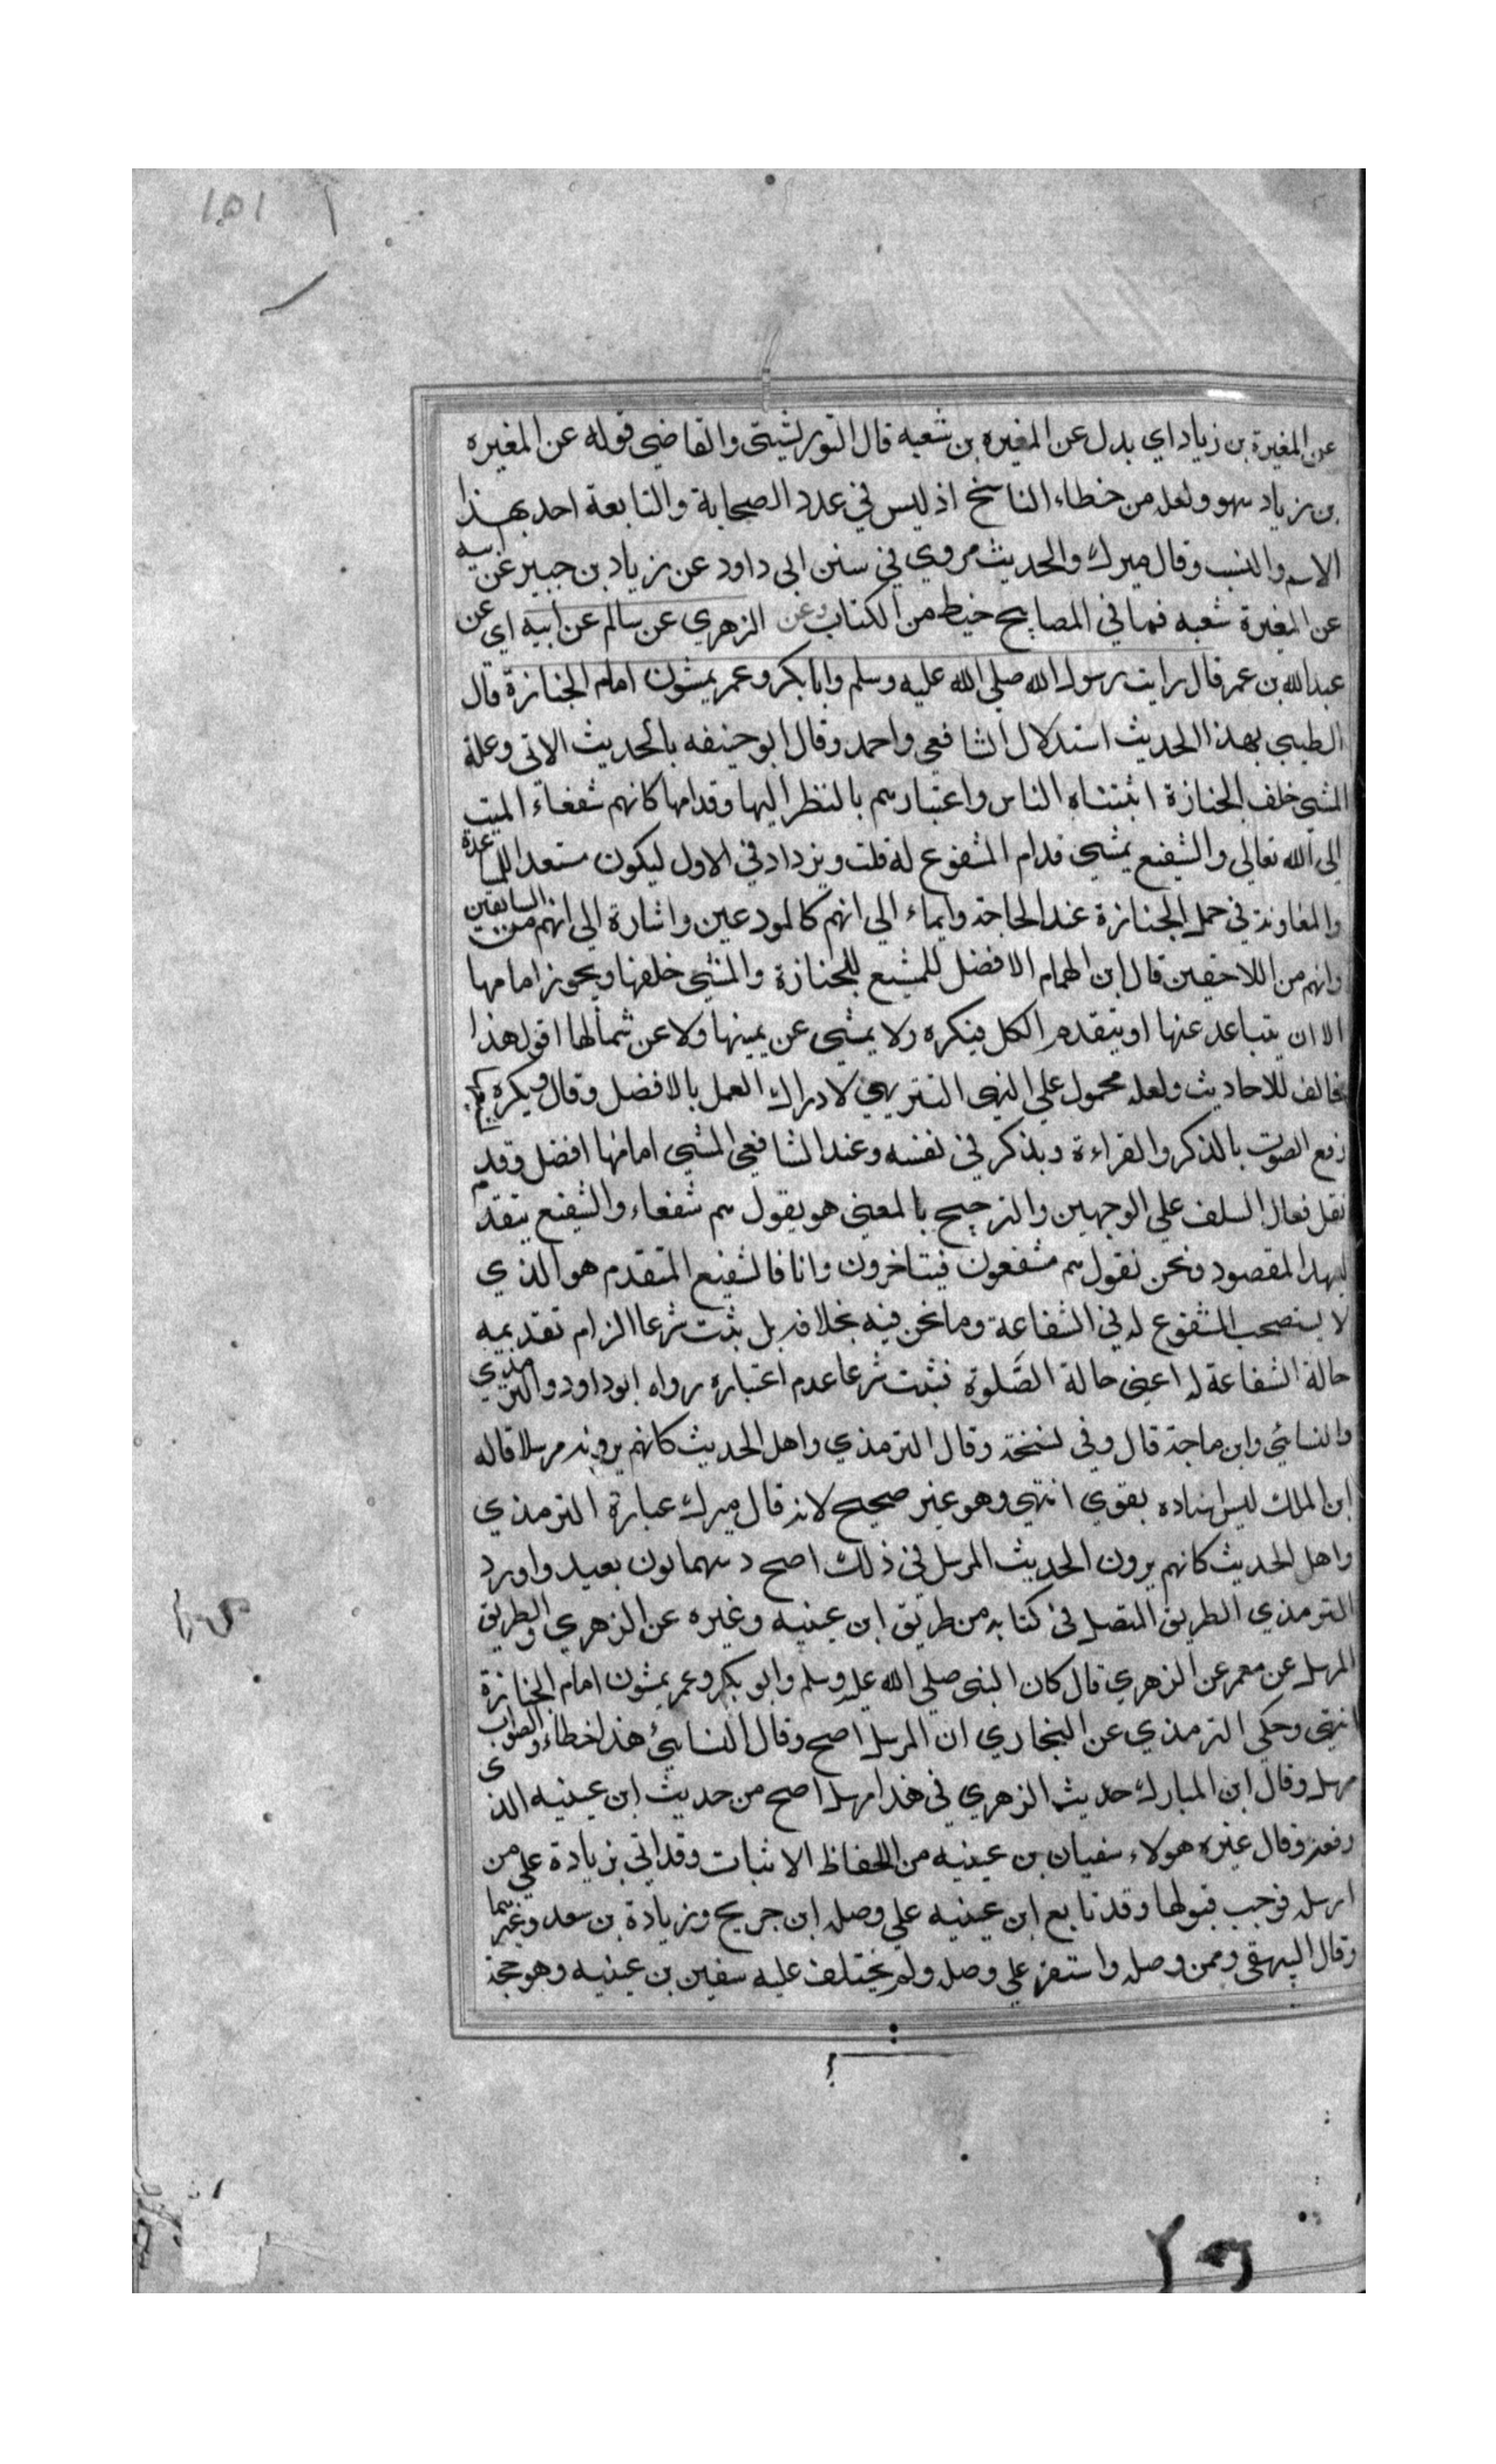 ١٥١
عن المغيرة بن زياد اي بدل عن المغيره بن شعبه قال التوربشتي والقاضي قوله عن المغيره
بن زياد سهو ولعله من خطاء الناسخ اذ ليس في عدد الصحابة والتابعة احد بهذا
الاسم والنسب وقال ميرك والحديث مروي في سنن ابي داود عن زياد بن جبير عن ابيه
عن المغيرة شعبه فما في المصابيح خبط من الكتاب وعن الزهري عن سالم عن ابيه اي عن
عبدالله بن عمر قال رايت رسول الله صلي الله عليه وسلم وابا بكر وعمر يمشون امام الجنازة قال
الطيبي بهذا الحديث استدلال الشافعي واحمد وقال ابو حنيفه بالحديث الاتي وعلة
المشي خلف الجنازة انتباه الناس واعتبارهم بالنظر اليها وقدامها كانهم شفعاء الميت
الي الله تعالي والشفيع يمشي قدام المشفوع له قلت ويزداد في الاول ليكون مستعدا للمساعدة
والمعاونة في حمل الجنازة عند الحاجة وايماء الي انهم كالمودعين واشارة الي انهم من السابقين
وانهم من اللاحقين قال ابن الهمام الافضل للمشيع للجنازة والمشي خلفها ويجوز امامها
الا ان يتباعد عنها او يتقدم الكل فيكره ولا يمشي عن يمينها ولا عن شمالها اقول هذا
مخالف للاحاديث ولعله محمول علي النهي التنزيهي لادراك العمل بالافضل وقال ويكره
رفع الصوت بالذكر والقراءة ويذكر في نفسه وعند الشافعي المشي امامها افضل وقد
نقل فعال السلف علي الوجهين والترجيح بالمعني هو يقول هم شفعاء والشفيع يتقدم
ليمهد المقصود ونحن نقول هم مشفعون فيتاخرون وانا فالشفيع المتقدم هو الذي
لا يستصحب المشفوع له في الشفاعة وما نحن فيه بخلافه بل ثبت شرعا الزام تقديمه
حالة الشفاعة له اعني حالة الصَّلوة فثبت شرعا عدم اعتباره رواه ابو داود والترمذي
والنسائي وابن ماجة قال وفي نسخة وقال الترمذي واهل الحديث كانهم يرونه مرسلا قاله
ابن الملك ليس اسناده بقوي انتهي وهو غير صحيح لانه قال ميرك عبارة الترمذي
واهل الحديث كانهم يرون الحديث المرسل في ذلك اصح وبينهما بون بعيد واورد
الترمذي الطريق المتصل في كتابه من طريق ابن عيينه وغيره عن الزهري والطريق
المرسل عن معمر عن الزهري قال كان النبي صلي الله عليه وسلم وابو بكر وعمر يمشون امام الجنازة
انتهي وحكي الترمذي عن البخاري ان المرسل اصح وقال النسائي هذا خطاء والصواب
مرسل وقال ابن المبارك حديث الزهري في هذا مرسل اصح من حديث ابن عيينه الذي
رفعه وقال غيره هولاء سفيان بن عيينه من الحفاظ الاثبات وقد اتي بزيادة علي من
ارسله فوجب قبولها وقد تابع ابن عيينه علي وصله ابن جريح وزيادة بن سعد وغيرهما
وقال البيهقي وممن وصله واستقر علي وصله ولم يختلف عليه سفين بن عيينه وهو حجة